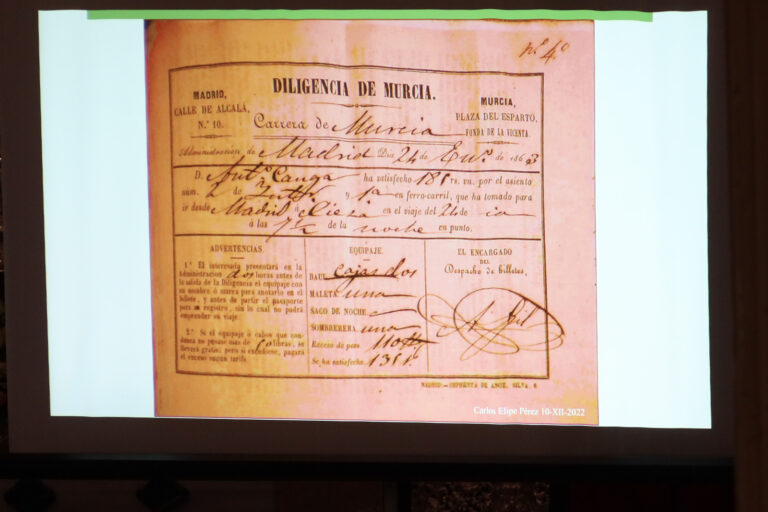 nº 4º
DILIGENCIA DE MURCIA.
MADRID,
CALLE DE ALCALÁ,
N.º 10.
Carrera de Murcia
MURCIA,
PLAZA DEL ESPARTO,
FONDA DE LA VICENTA.
Administracion de Madrid Dia 24 de En.º de 1863
D. Ant.º Canga ha satisfecho 181 rs. vn. por el asiento
núm. 2 de y 1ª en ferro-carril, que ha tomado para
ir desde Madrid á Cieza en el viaje del 24 de
á las 7 1/2 de la noche en punto.
ADVERTENCIAS.
1.ª El interesado presentará en la
Administracion dos horas antes de
la salida de la Diligencia el equipaje con
su nombre ó marca para anotarlo en el
billete, y antes de partir el pasaporte
para su registro, sin lo cual no podrá
emprender su viaje.
2.ª Si el equipaje ó cabos que con-
duzca no pesase mas de libras, se
llevará gratis; pero si excediese, pagará
el exceso segun tarifa.
EQUIPAJE.
BAUL cajas dos
MALETA una
SACO DE NOCHE
SOMBRERERA una
Exceso de peso
Se ha satisfecho
EL ENCARGADO
DEL
Despacho de billetes,
MADRID.—IMPRENTA DE ANOZ, SILVA, 6
Carlos Elipe Pérez 10-XII-2022